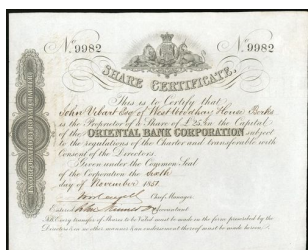 No. 9982 No. 9982
SHARE CERTIFICATE.
This is to Certify that
John Vibart Esqr of West Woodhay House Berks
is the Proprietor of a Share of £25 In the Capital
of the ORIENTAL BANK CORPORATION subject
to the regulations of the Charter and transferable with
Consent of the Directors.
Given under the Common Seal
of the Corporation the Sixth
day of November 1851.
Chief Manager
Entered Accountant
Every transfer of Shares to be Valid must be made in the form provided by the
Directors & on no other can an endorsement thereof must be made hereon.
INCORPORATED